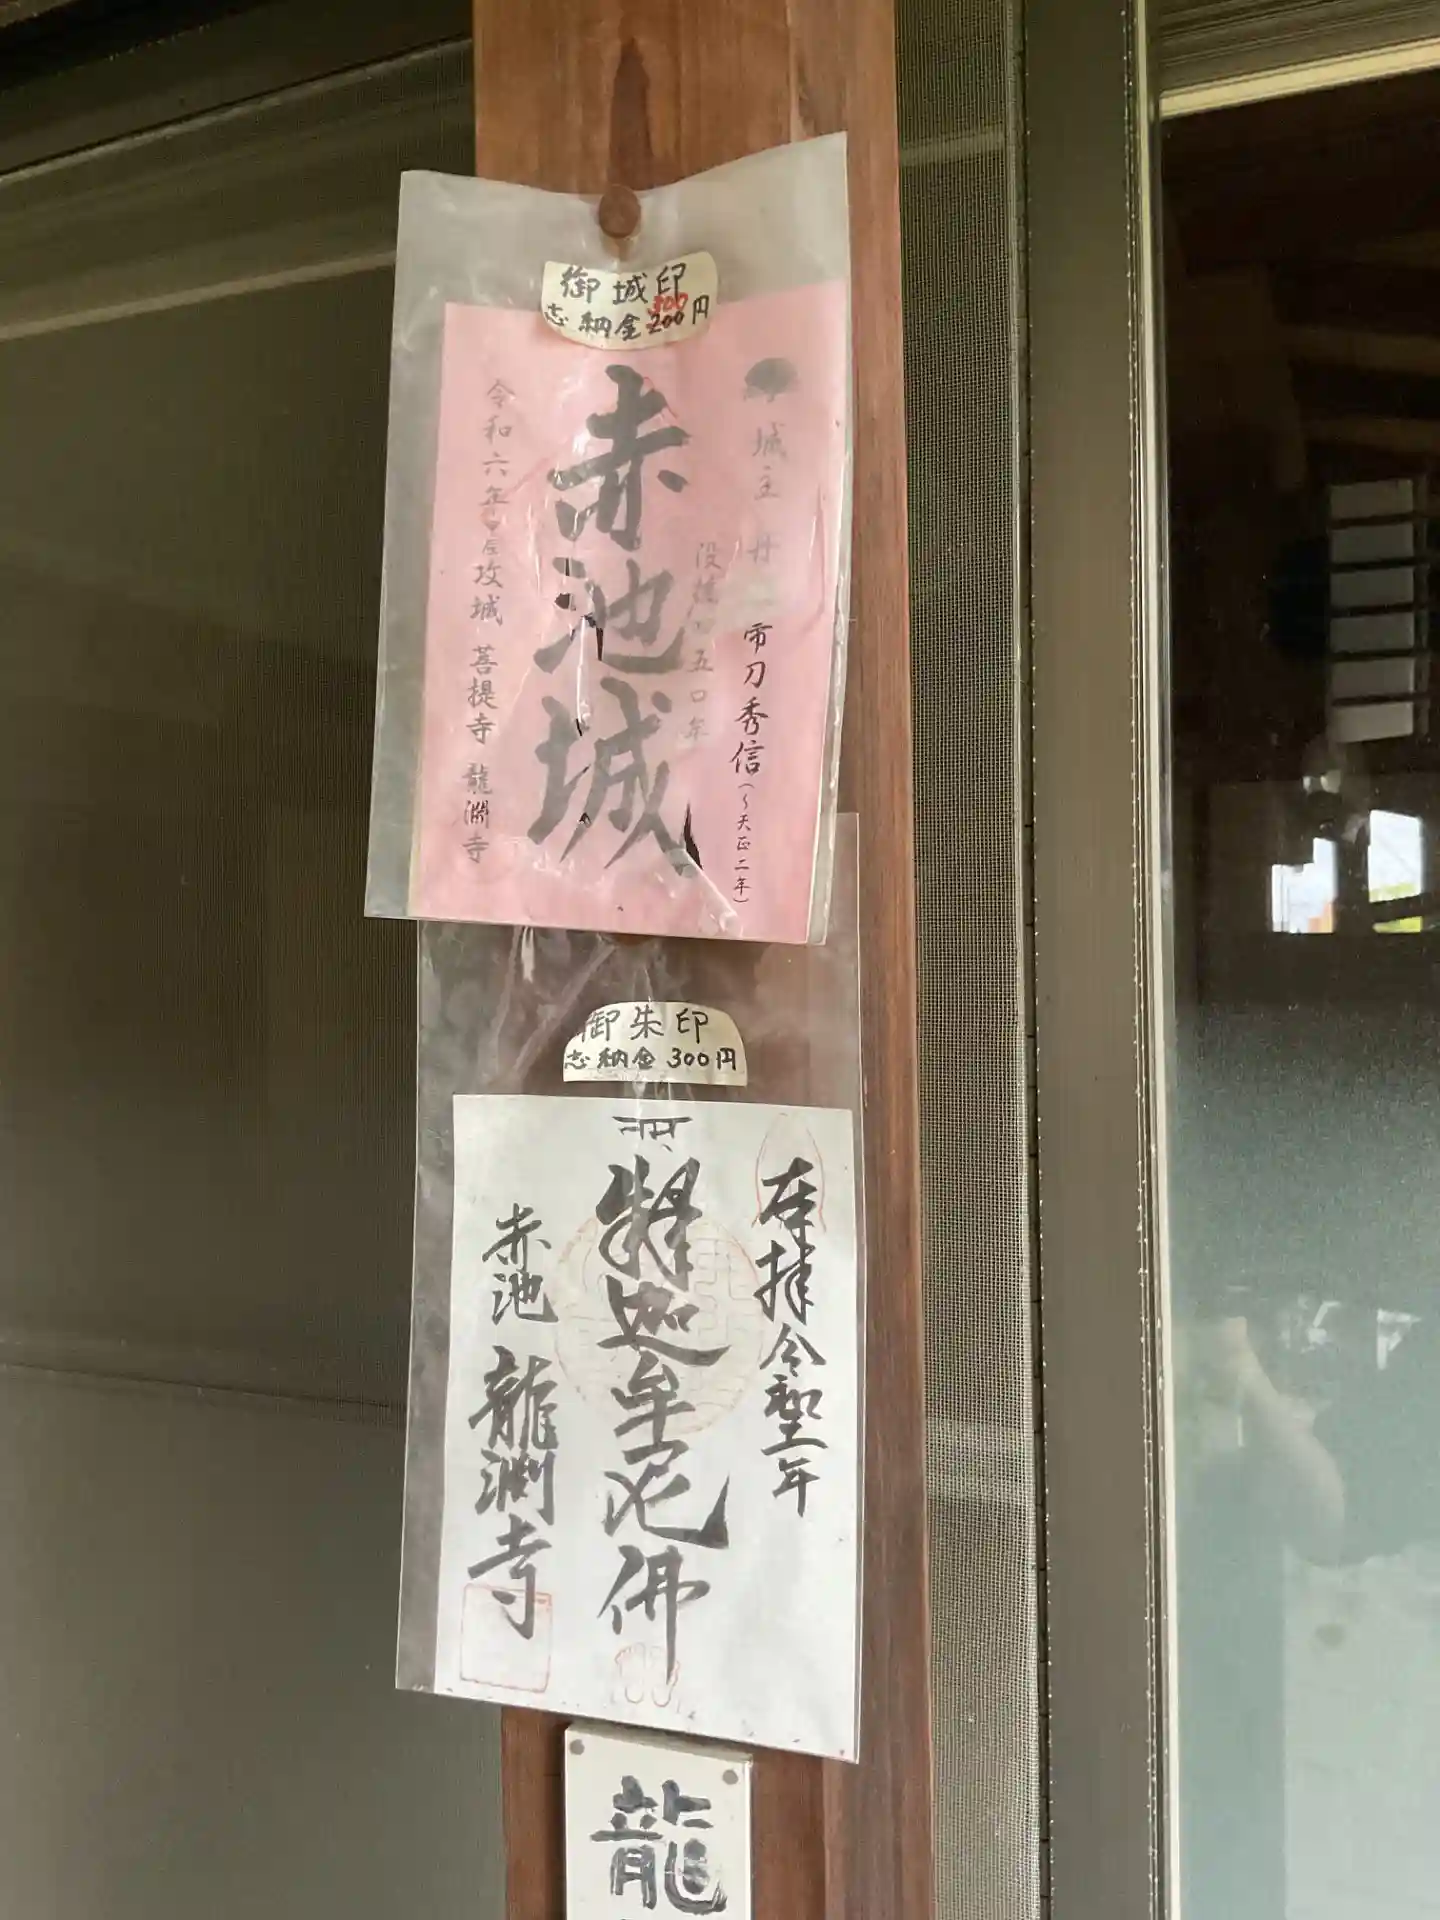 御城印
志納金300円
200
城主 丹
帯刀秀信(〜天正二年)
没後四五〇年
赤池城
令和六年甲辰攻城 菩提寺 龍淵寺
御朱印
志納金300円
奉拝 令和 年
釋迦牟尼佛
赤池 龍淵寺
龍